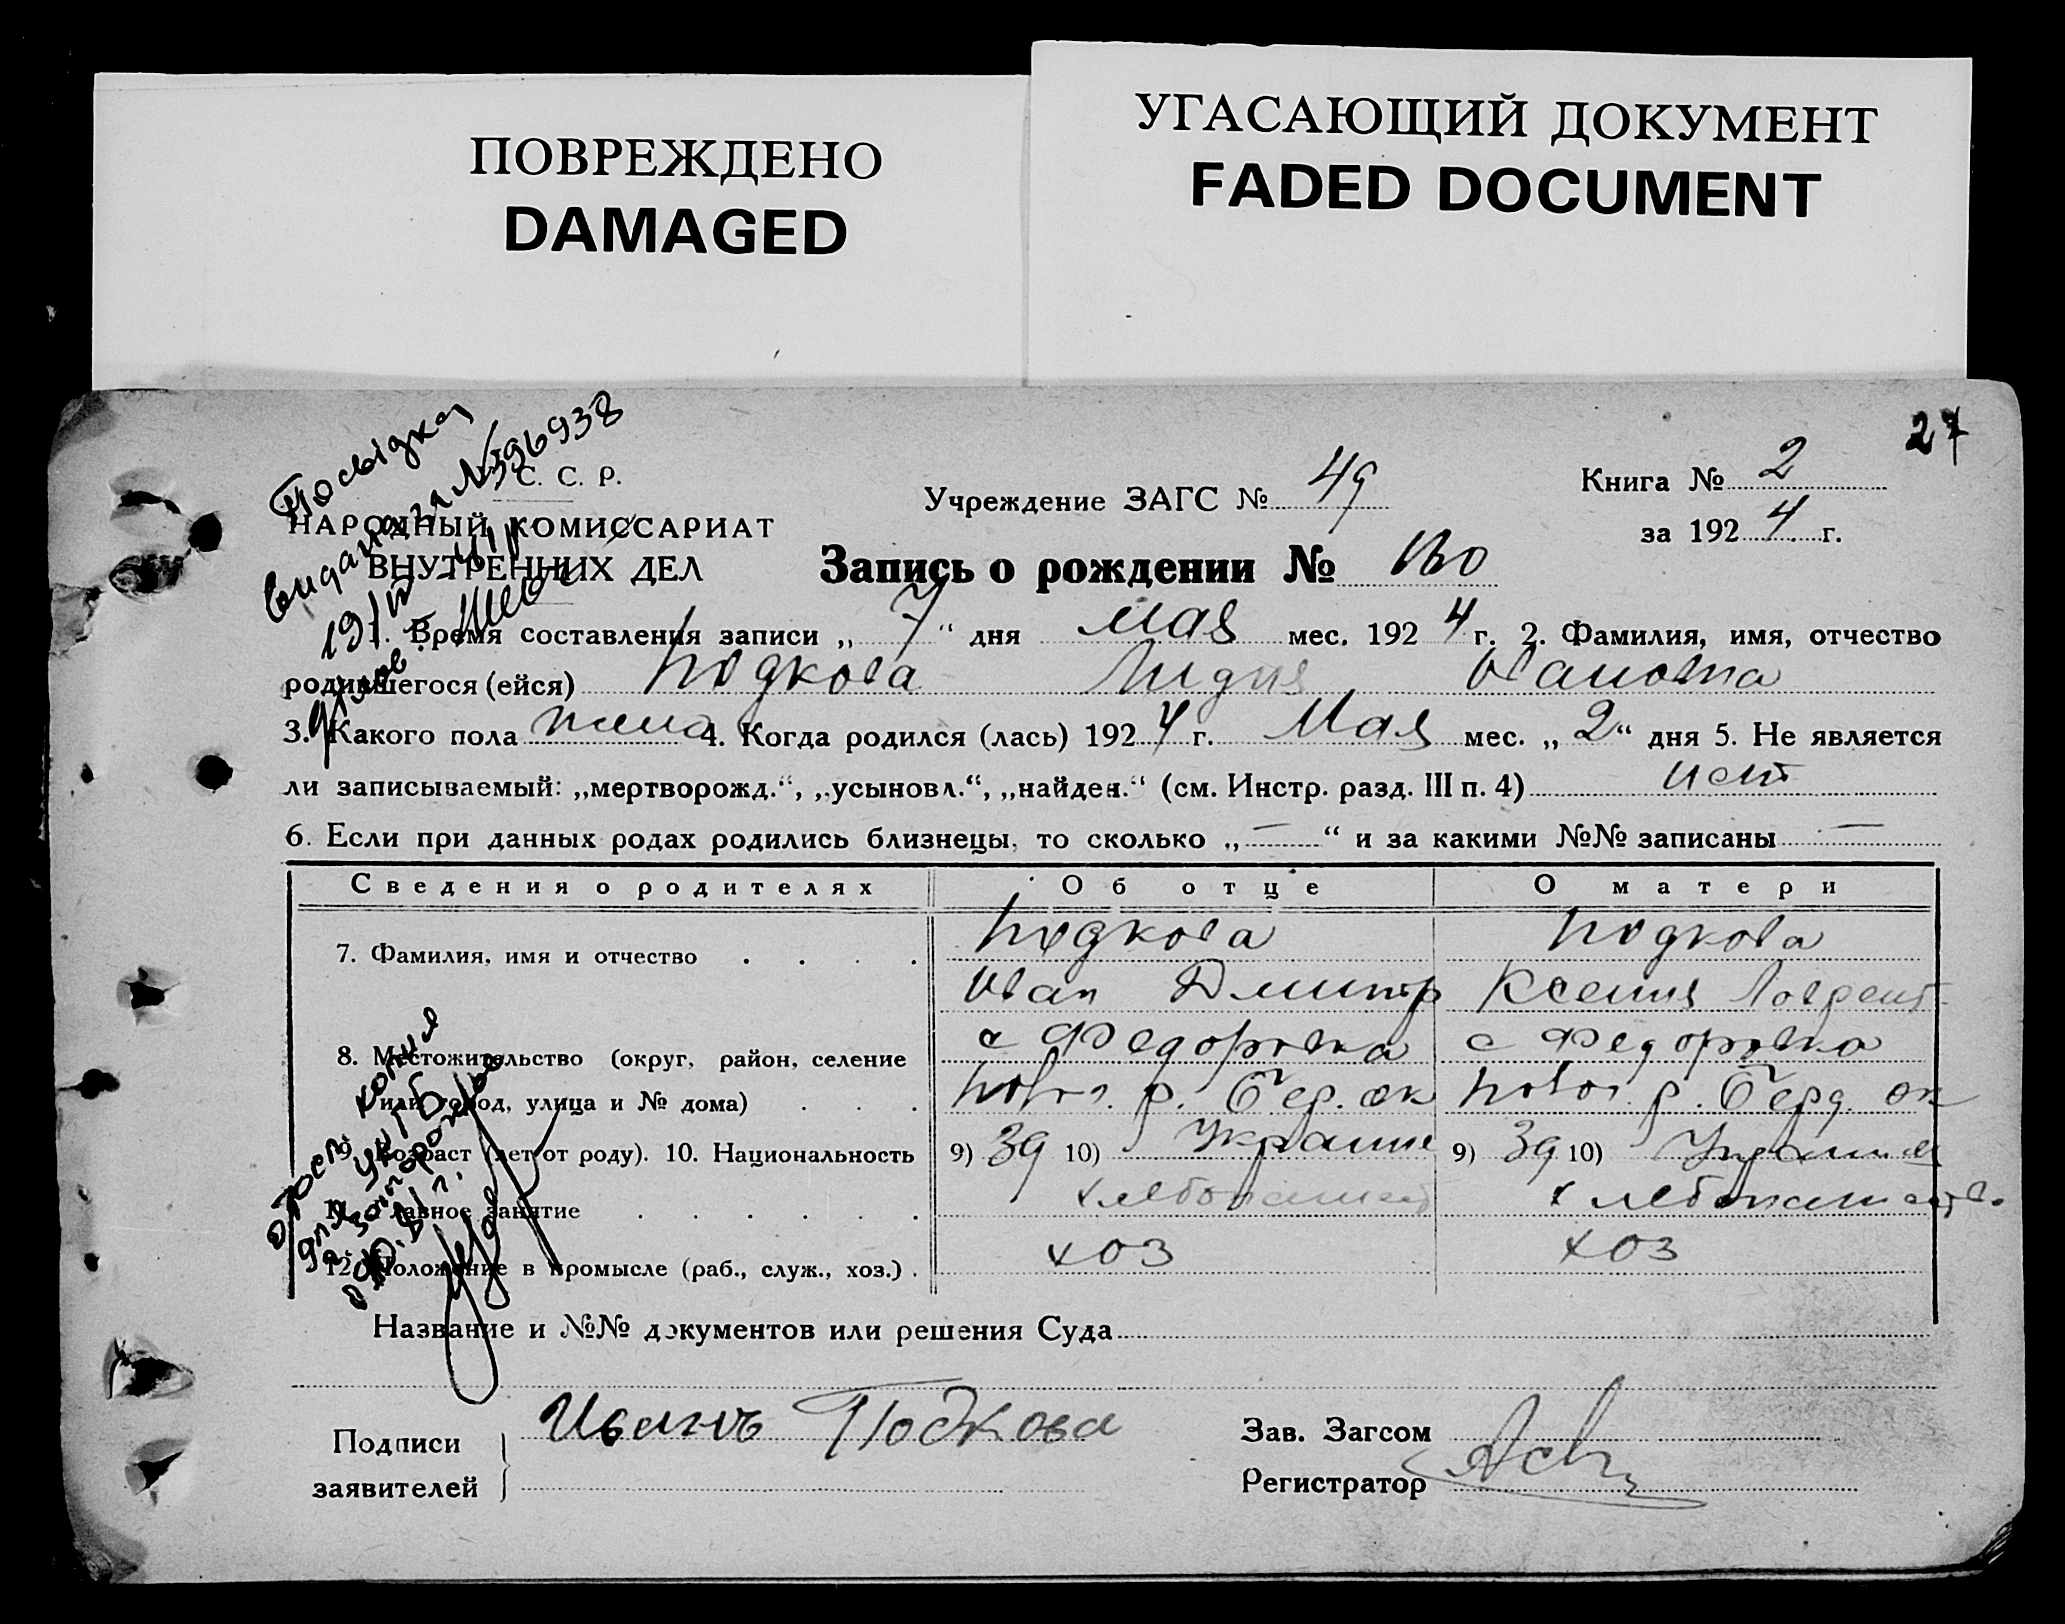 ПОВРЕЖДЕНО
DAMAGED
УГАСАЮЩИЙ ДОКУМЕНТ
FADED DOCUMENT
27
Посвідка
видана № 396938
С. С. Р.
НАРОДНЫЙ КОМИССАРИАТ
ВНУТРЕННИХ ДЕЛ
Учреждение ЗАГС № 49
Книга № 2
за 1924 г.
Запись о рождении № 160
1. Время составления записи „ 7 “ дня мая мес. 1924 г. 2. Фамилия, имя, отчество
родившегося (ейся) Подкова Лидия Ивановна
3. Какого пола жена 4. Когда родился (лась) 1924 г. Мая мес. „ 2 “ дня 5. Не является
ли записываемый: „мертворожд.“, „усыновл.“, „найден.“ (см. Инстр. разд. III п. 4) нет
6. Если при данных родах родились близнецы, то сколько „ — “ и за какими №№ записаны —
Сведения о родителях Об отце О матери
7. Фамилия, имя и отчество Подкова Подкова
Иван Дмитр Ксения Лаврент
8. Местожительство (округ, район, селение с Федоровка с Федоровка
или город, улица и № дома) Новос. р. Бер. ок Новос. р. Берд. ок
9. Возраст (лет от роду). 10. Национальность 9) 39 10) Украине 9) 39 10)
11. Главное занятие хлебопашест хлебопашество
12. Положение в промысле (раб., служ., хоз.) хоз хоз
копия
для УКГБ
Название и №№ документов или решения Суда
Подписи
заявителей
Иванъ Подкова
Зав. Загсом
Регистратор